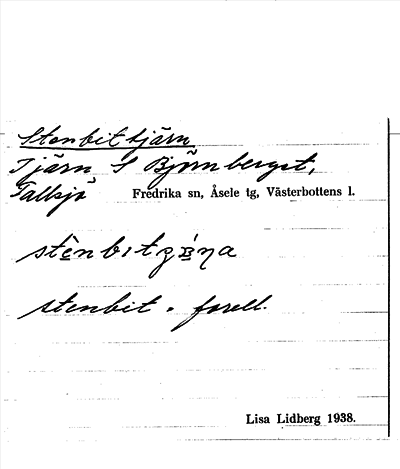 Stenbittjärn
Tjärn S Björnberget,
Tallsjö Fredrika sn, Åsele tg, Västerbottens l.
stenbit = forell.
Lisa Lidberg 1938.